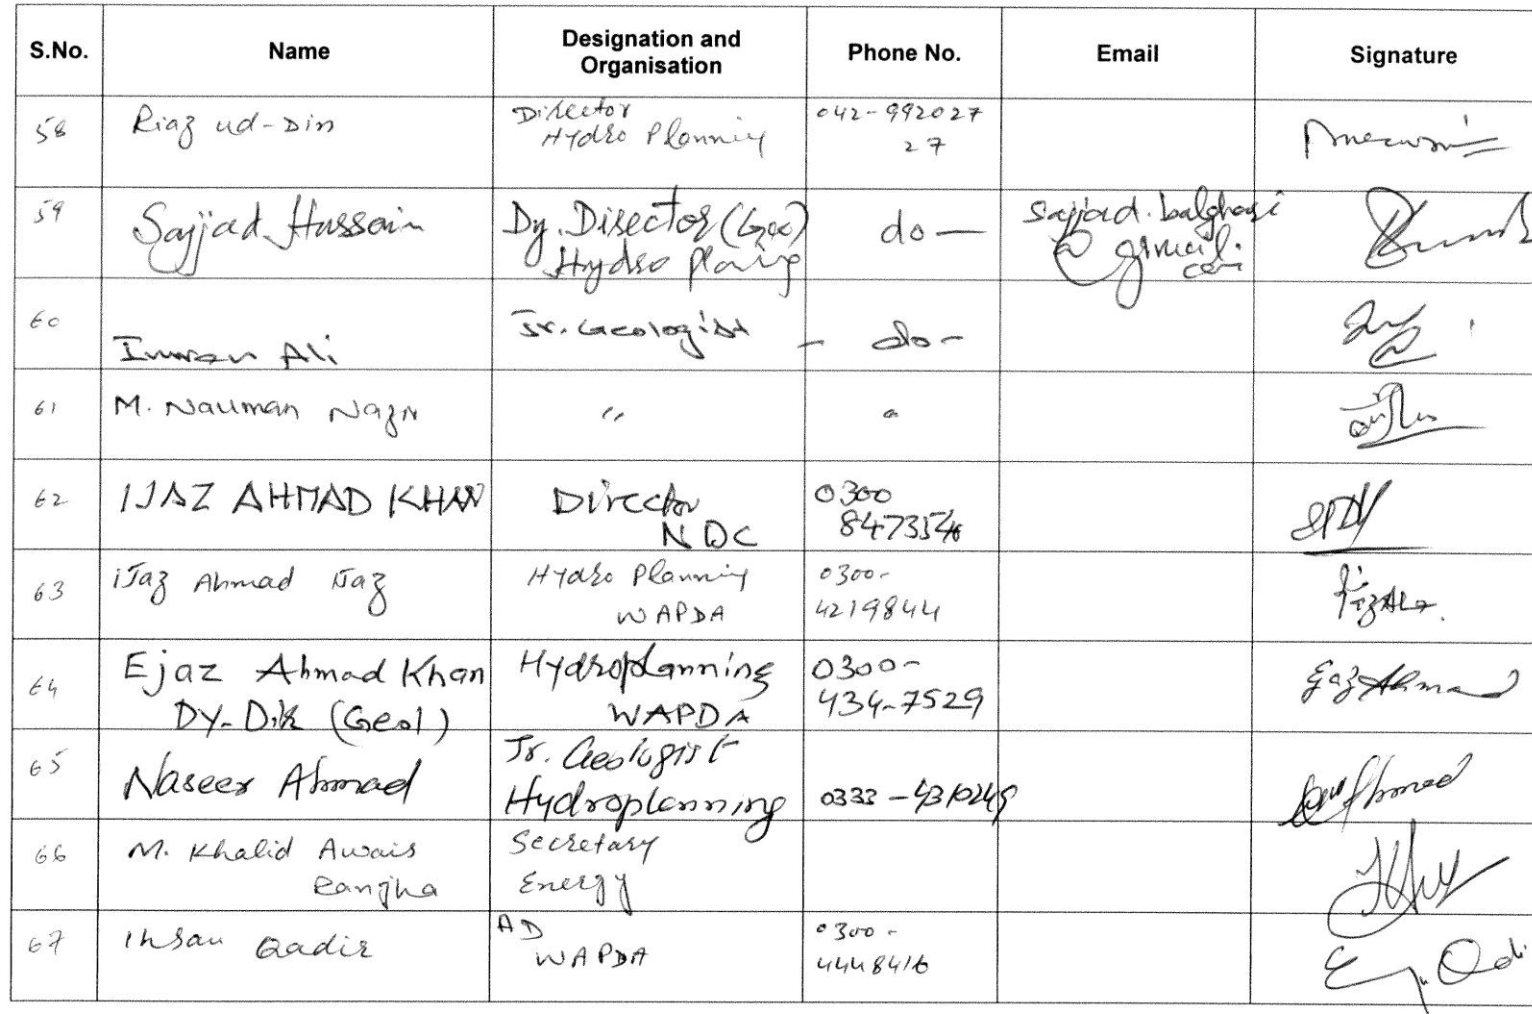 S.No. Name Designation and Organisation Phone No. Email Signature
58 Riaz ud-Din Director Hydro Planning 042-99202727
59 Sajjad Hussain Dy. Director (Geo) Hydro Planing do — sajjad.balghari@gmail.com
60 Imran Ali Jr. Geologist - do -
61 M. Nauman Nazir " "
62 IJAZ AHMAD KHAN Director NDC 0300
63 iJaz Ahmad iJaz Hydro Planning WAPDA 0300-4219844
64 Ejaz Ahmad Khan DY-Dir (Geol) Hydroplanning WAPDA 0300-434-7529 Ejaz Ahmad
65 Naseer Ahmad Jr. Geologist Hydroplanning 0333-4310249 Ahmad
66 M. Khalid Awais Ranjha Secretary Energy
67 Ihsan Qadir AD WAPDA 0300-4448416